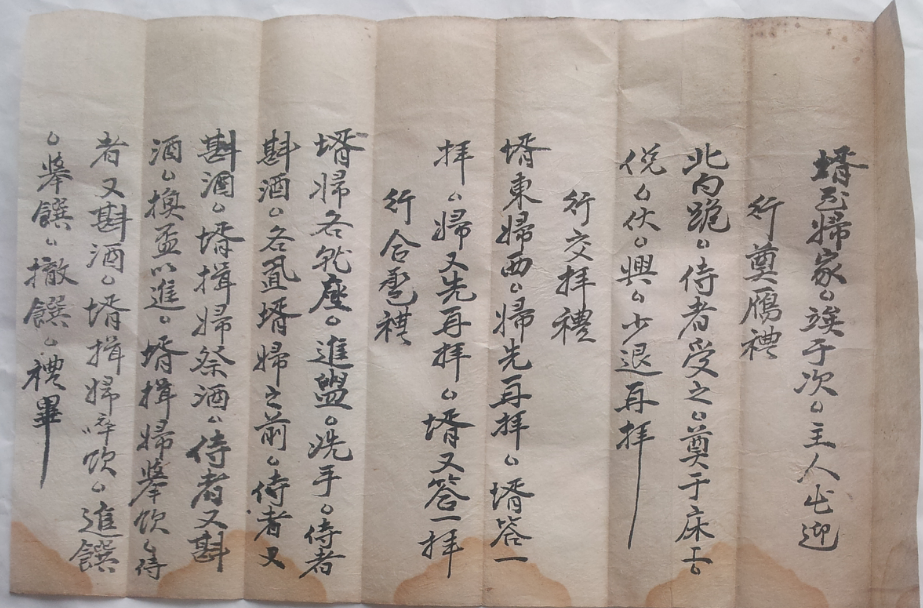 壻至婦家。竢于次。主人出迎
行奠鴈禮
北向跪。侍者受之。奠于床上。
俛。伏。興。少退再拜
行交拜禮
壻東婦西。婦先再拜。壻答一
拜。婦又先再拜。壻又答一拜
行合巹禮
壻婦各就座。進盥。洗手。侍者
斟酒。各置壻婦之前。侍者又
斟酒。壻揖婦祭酒。侍者又斟
酒。換盃以進。壻揖婦擧飲。侍
者又斟酒。壻揖婦啐飲。進饌
。擧饌。撤饌。禮畢